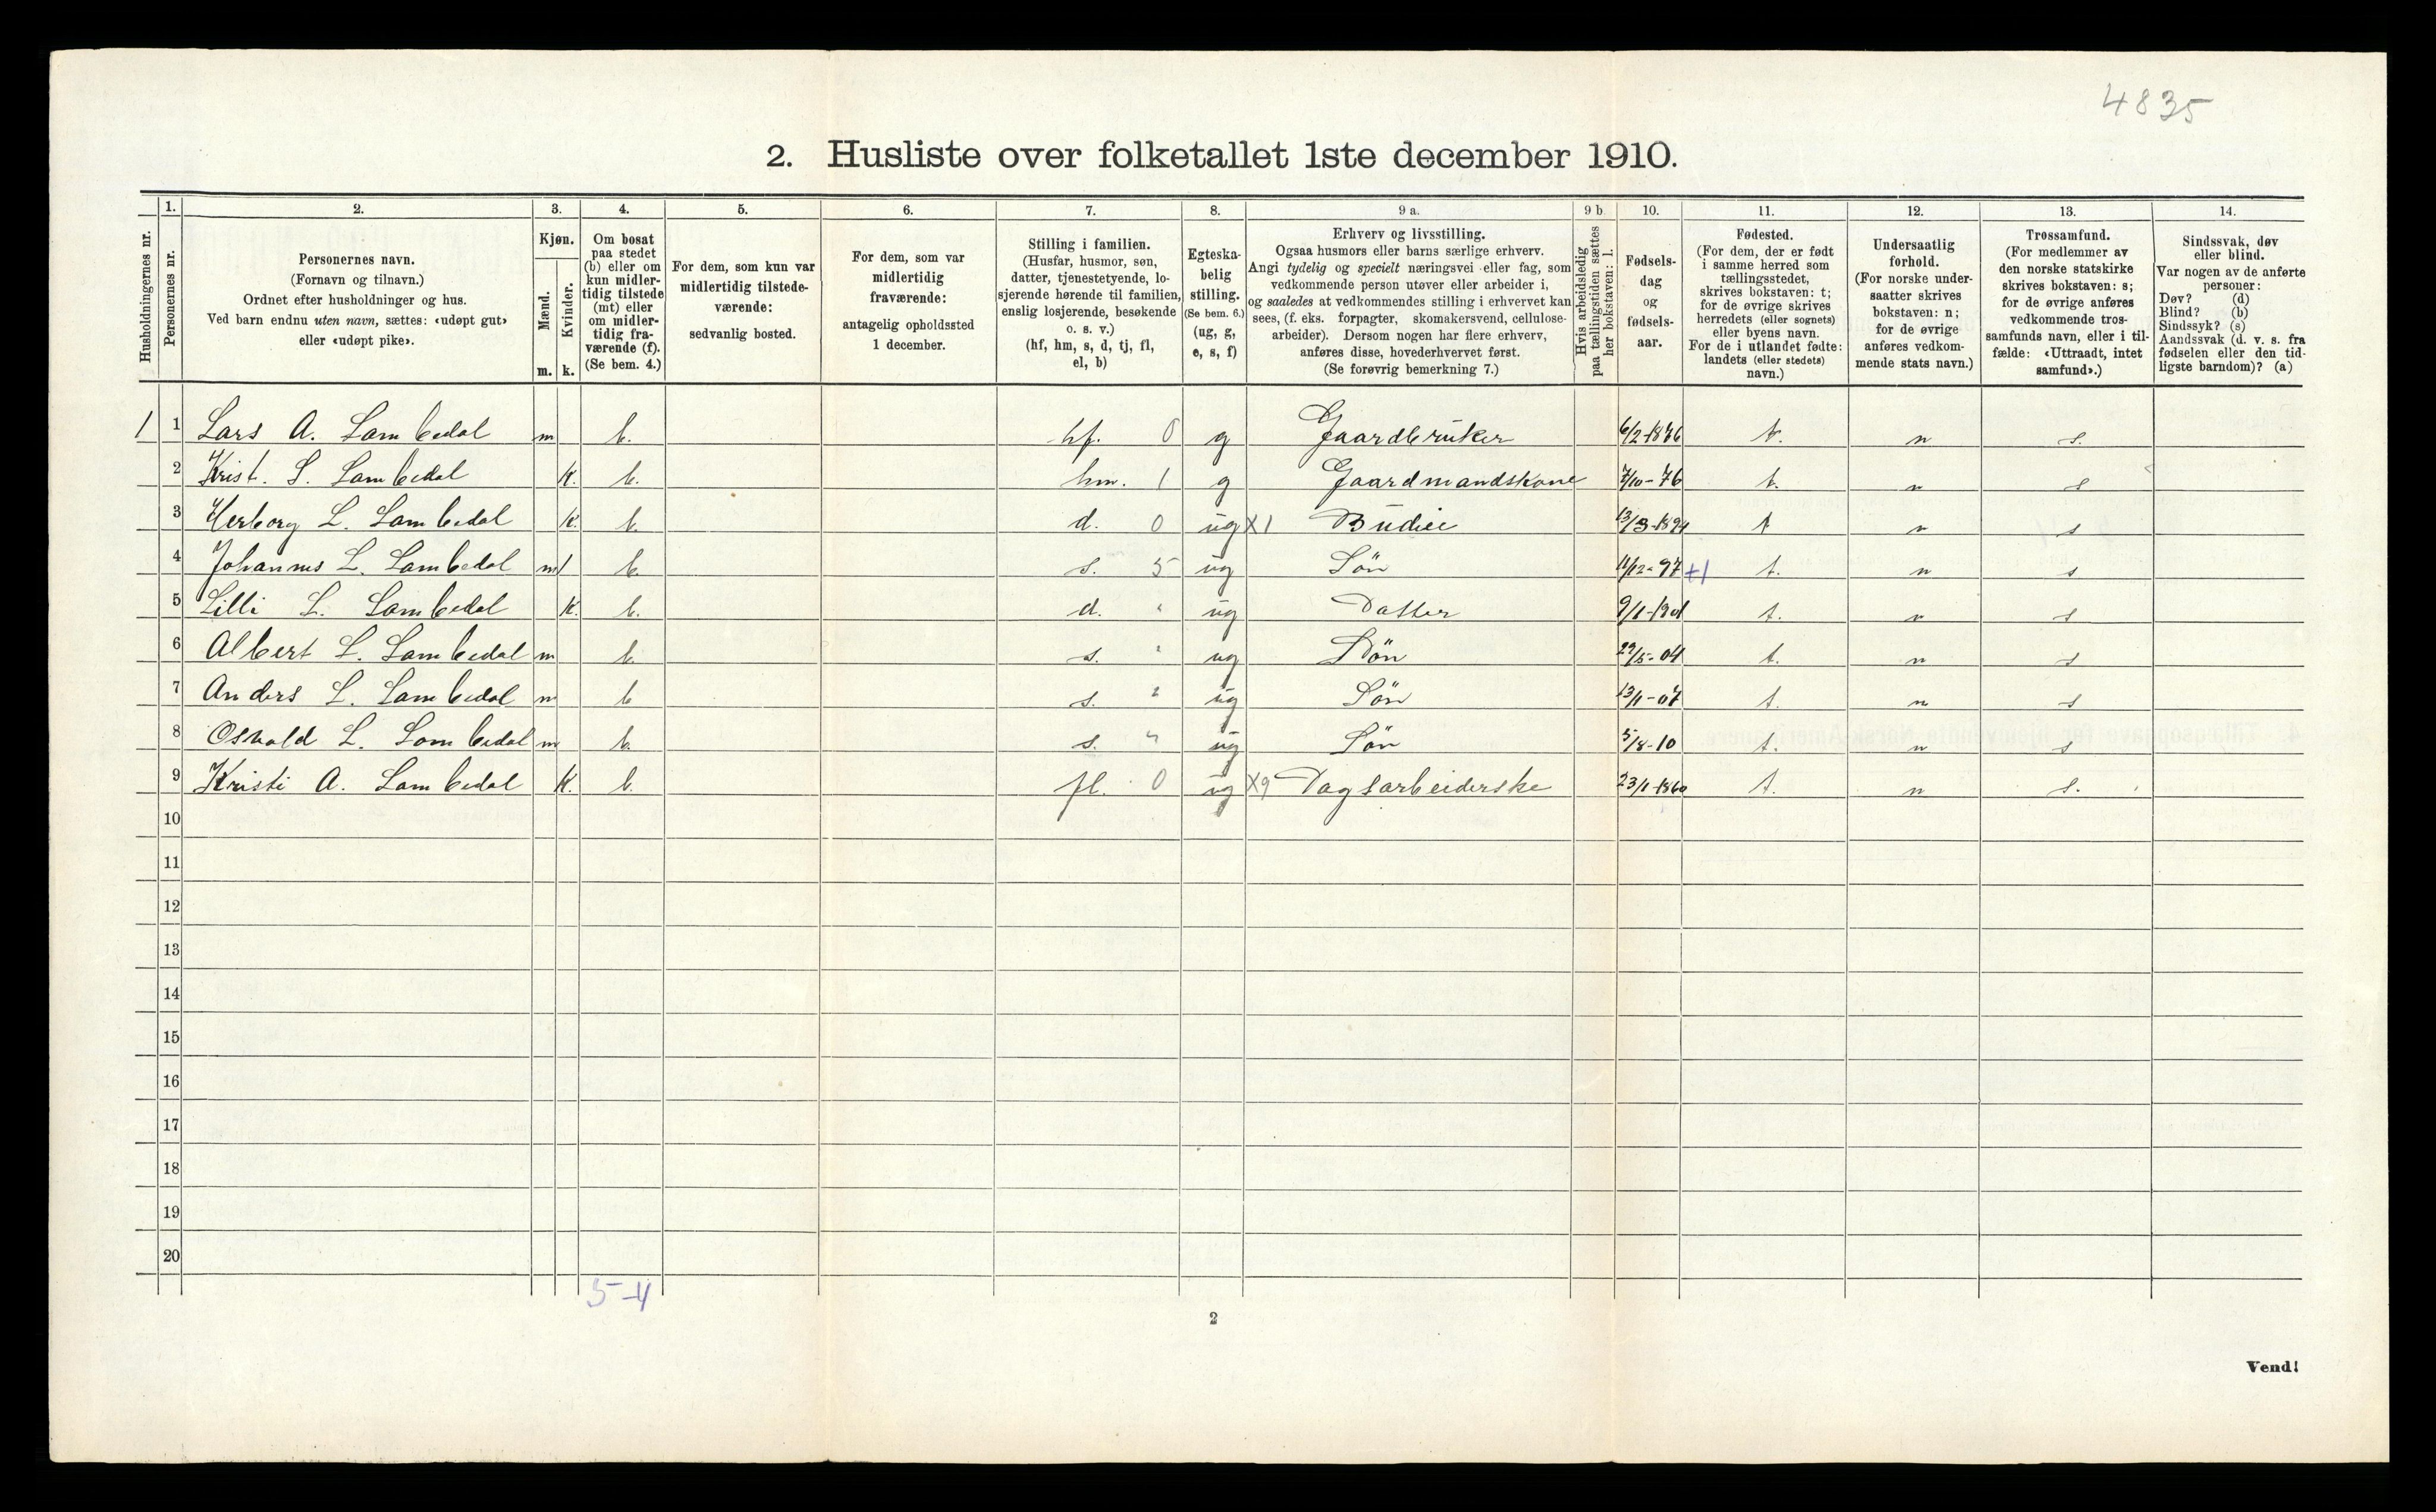 4835
2. Husliste over folketallet 1ste december 1910.
Husholdningernes nr.
1.
Personernes nr.
2.
Personernes navn.
(Fornavn og tilnavn.)
Ordnet efter husholdninger og hus.
Ved barn endnu uten navn, sættes: «udøpt gut»
eller «udøpt pike».
3.
Kjøn.
Mænd.
Kvinder.
m. k.
4.
Om bosat
paa stedet
(b) eller om
kun midler-
tidig tilstede
(mt) eller
om midler-
tidig fra-
værende (f).
(Se bem. 4.)
5.
For dem, som kun var
midlertidig tilstede-
værende:
sedvanlig bosted.
6.
For dem, som var
midlertidig
fraværende:
antagelig opholdssted
1 december.
7.
Stilling i familien.
(Husfar, husmor, søn,
datter, tjenestetyende, lo-
sjerende hørende til familien,
enslig losjerende, besøkende
o. s. v.)
(hf, hm, s, d, tj, fl,
el, b)
8.
Egteska-
belig
stilling.
(Se bem. 6.)
(ug, g,
e, s, f)
9 a.
Erhverv og livsstilling.
Ogsaa husmors eller barns særlige erhverv.
Angi tydelig og specielt næringsvei eller fag, som
vedkommende person utøver eller arbeider i,
og saaledes at vedkommendes stilling i erhvervet kan
sees, (f. eks. forpagter, skomakersvend, cellulose-
arbeider). Dersom nogen har flere erhverv,
anføres disse, hovederhvervet først.
(Se forøvrig bemerkning 7.)
9 b
Hvis arbeidsledig
paa tællingstiden sættes
her bokstaven: l.
10.
Fødsels-
dag
og
fødsels-
aar.
11.
Fødested.
(For dem, der er født
i samme herred som
tællingsstedet,
skrives bokstaven: t;
for de øvrige skrives
herredets (eller sognets)
eller byens navn.
For de i utlandet fødte:
landets (eller stedets)
navn.)
12.
Undersaatlig
forhold.
(For norske under-
saatter skrives
bokstaven: n;
for de øvrige
anføres vedkom-
mende stats navn.)
13.
Trossamfund.
(For medlemmer av
den norske statskirke
skrives bokstaven: s;
for de øvrige anføres
vedkommende tros-
samfunds navn, eller i til-
fælde: «Uttraadt, intet
samfund».)
14.
Sindssvak, døv
eller blind.
Var nogen av de anførte
personer:
Døv? (d)
Blind? (b)
Sindssyk? (s)
Aandssvak (d. v. s. fra
fødselen eller den tid-
ligste barndom)? (a)
1 1 Lars A. Lambedal m b. hf. 0 g Gaardbruker 6/2-1876 t. n s.
2 Krist. S. Lambedal k. b. hm. 1 g Gaardmandskone 7/10-76 t. n s
3 Herborg L. Lambedal k. b. d. 0 ug X1 Budeie 13/3-1894 t n s
4 Johannes L. Lambedal m b. s. 5 ug Søn 11/12-97 +1 t. n s
5 Lilli L. Lambedal k. b. d. " ug Datter 9/1-1901 t. n s
6 Albert L. Lambedal m b. s. " ug Søn 29/5-04 t. n s
7 Anders L. Lambedal m b s. " ug Søn 13/1-07 t. n s
8 Osvald L. Lambedal m b. s. " ug Søn 5/8-10 t. n s
9 Kristi A. Lambedal k. b. fl. 0 ug X9 Dagsarbeiderske 23/1-1860 t. n s.
10
11
12
13
14
15
16
17
18
19
20
5-4
2
Vend!